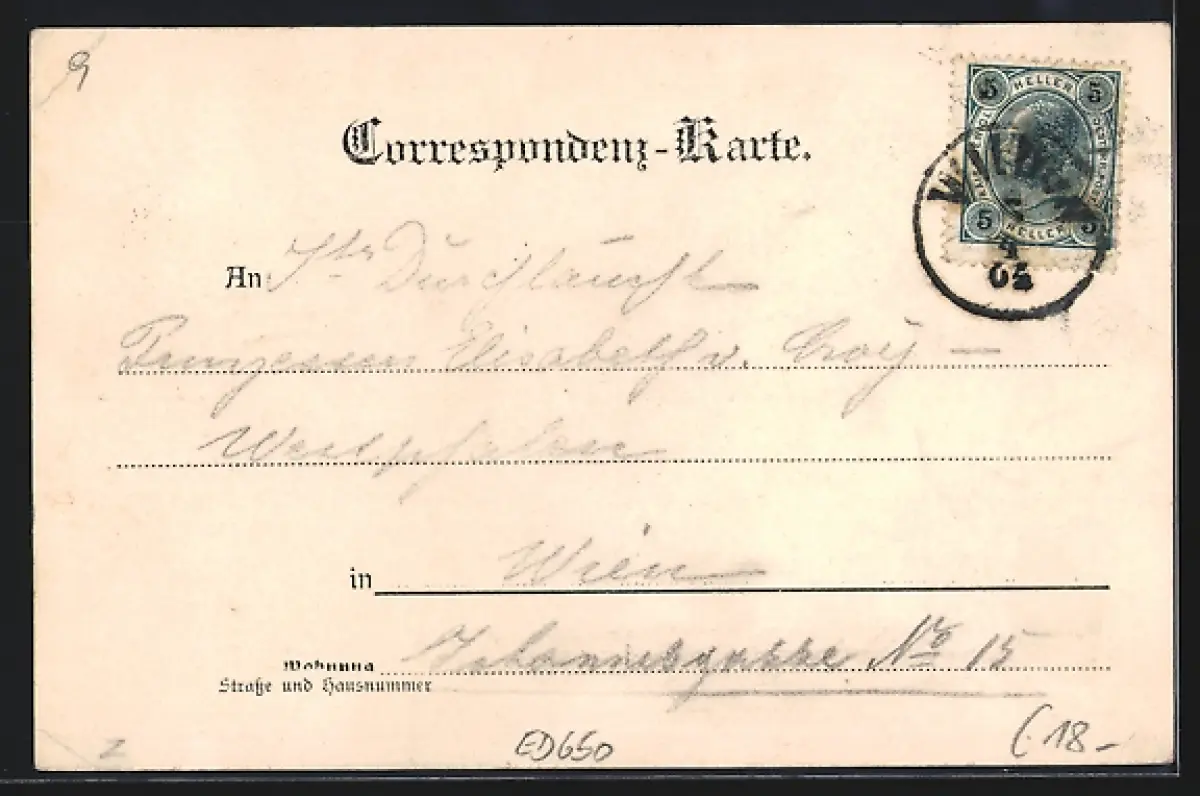 9
Correspondenz-Karte.
5 HELLER 5
5 HELLER 5
02
An Ihre Durchlaucht
Prinzessin Elisabeth v. Croÿ –
Westphalen
in Wien
Wohnung Johannesgasse No 15
Straße und Hausnummer
ED650
(18.–
z